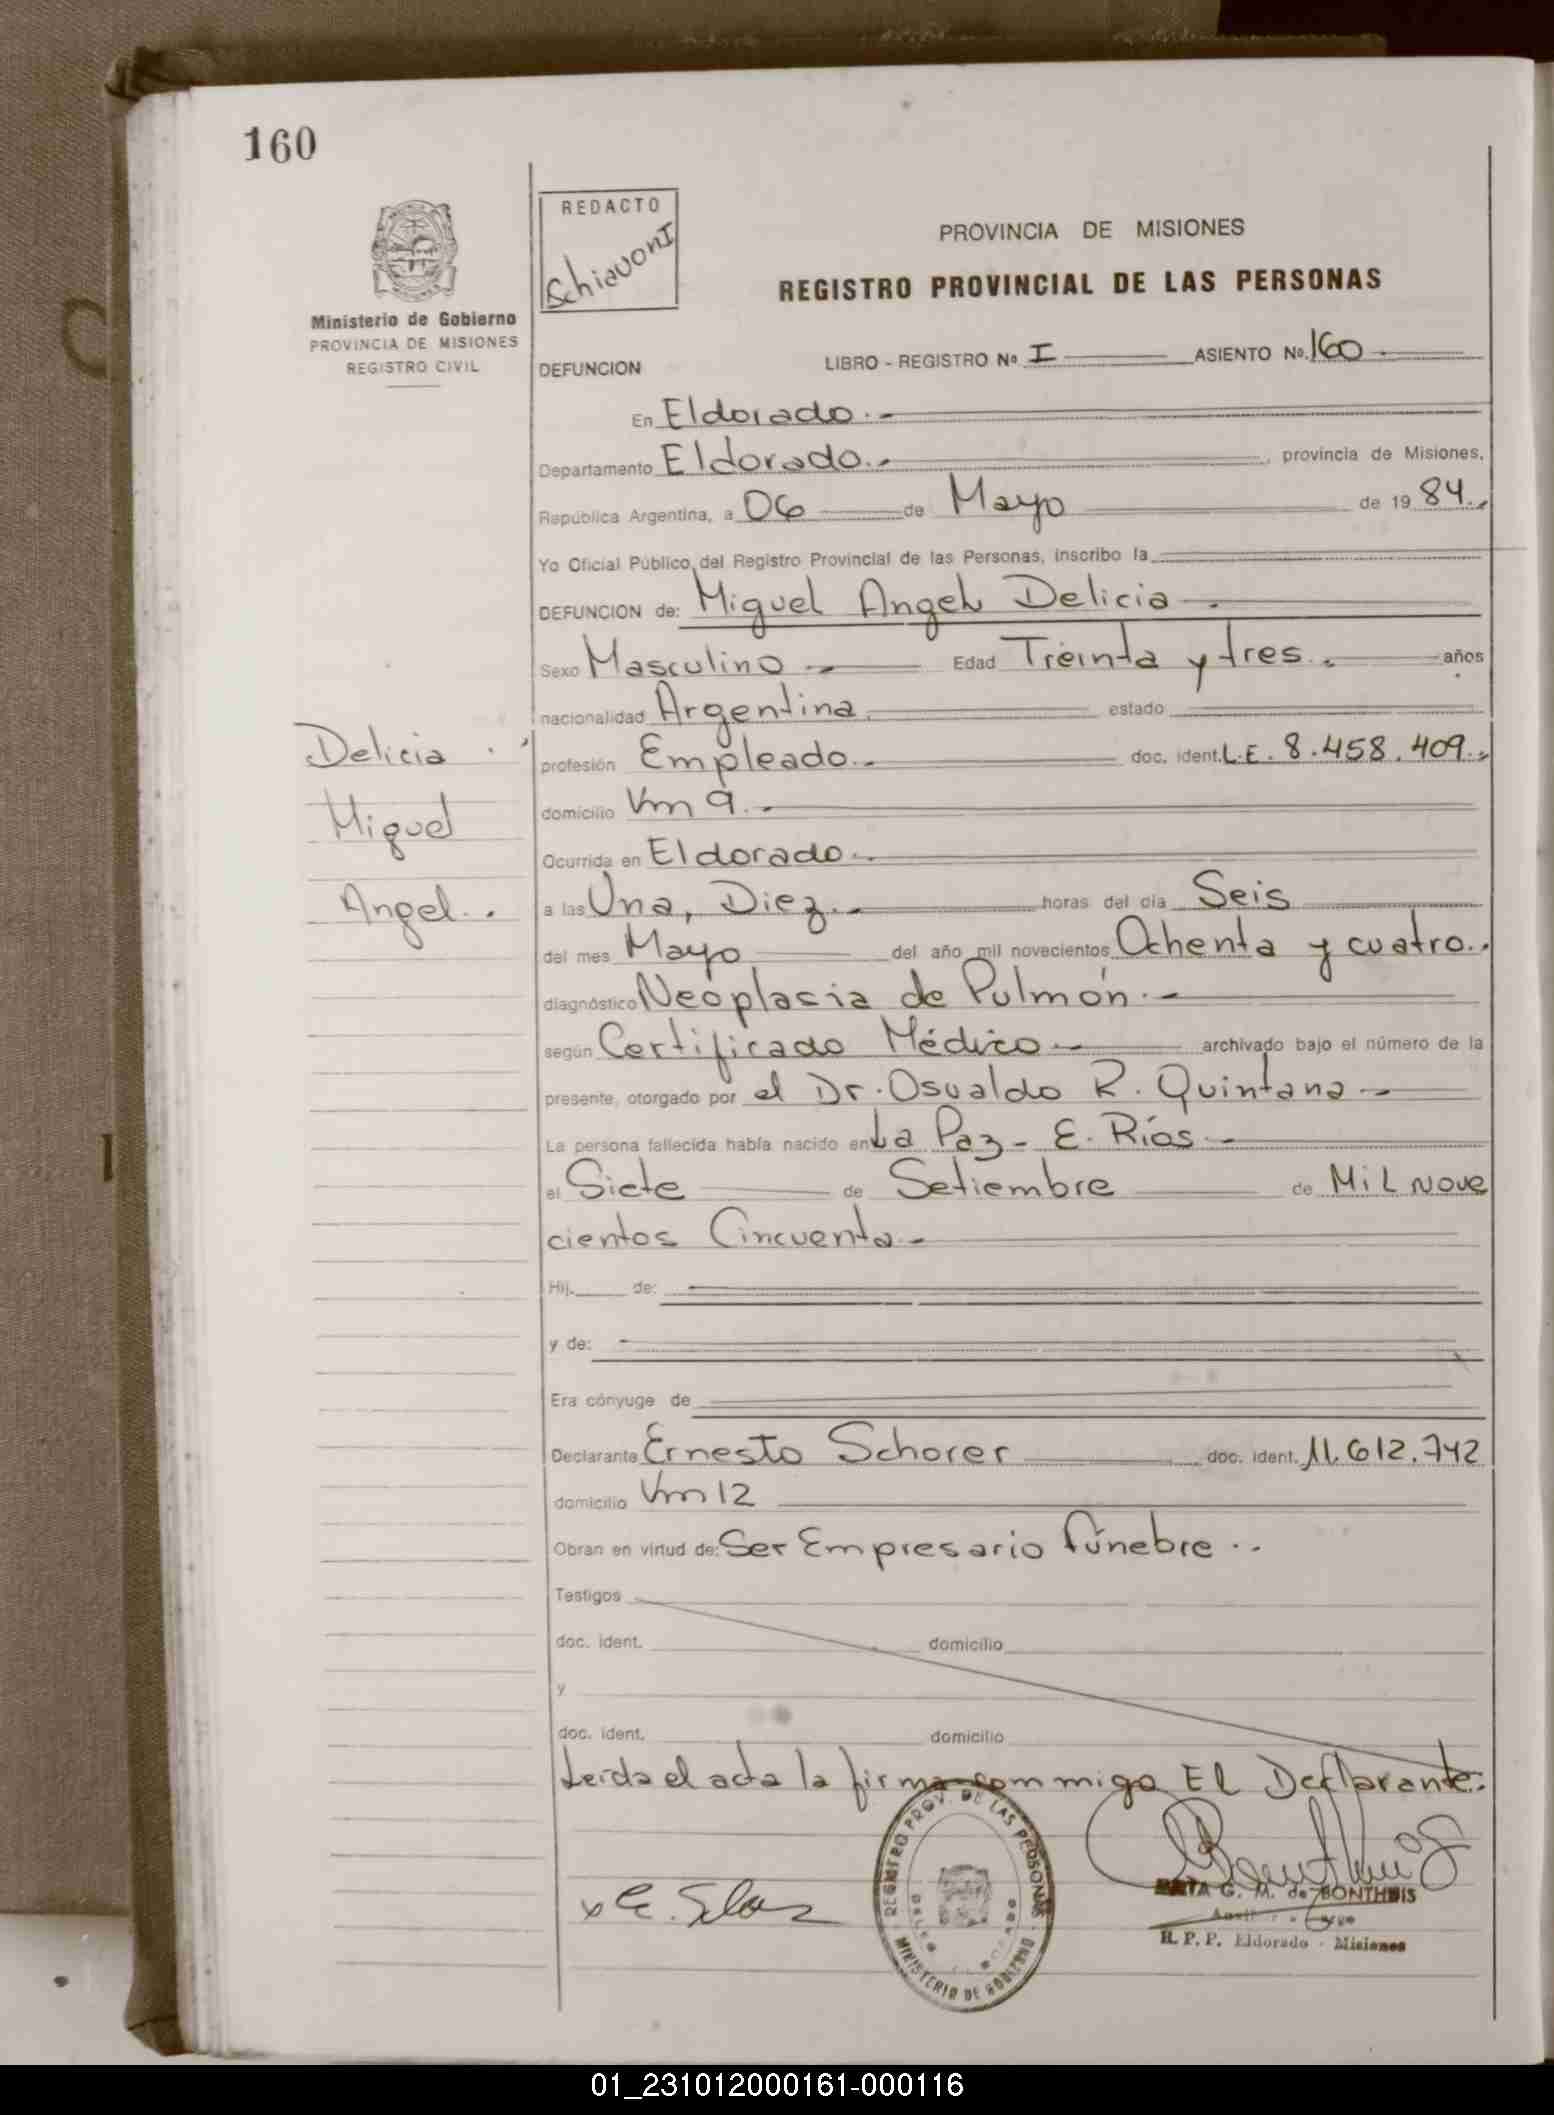 160
REDACTO
Schiavoni
Ministerio de Gobierno
PROVINCIA DE MISIONES
REGISTRO CIVIL
PROVINCIA DE MISIONES
REGISTRO PROVINCIAL DE LAS PERSONAS
DEFUNCION LIBRO - REGISTRO Nº I ASIENTO Nº. 160.-
En Eldorado.-
Departamento Eldorado.- , provincia de Misiones,
República Argentina, a 06 de Mayo de 19 84.-
Yo Oficial Público del Registro Provincial de las Personas, inscribo la
DEFUNCION de: Miguel Angel Delicia.
Sexo Masculino.- Edad Treinta y tres.- años
nacionalidad Argentina estado
profesión Empleado.- doc. ident. L.E. 8.458.409.-
domicilio Km 9.-
Ocurrida en Eldorado.-
a las Una, Diez.- horas del día Seis
del mes Mayo del año mil novecientos Ochenta y cuatro.-
diagnóstico Neoplasia de Pulmón.-
según Certificado Médico.- archivado bajo el número de la
presente, otorgado por el Dr. Osvaldo R. Quintana.-
La persona fallecida había nacido en La Paz - E. Ríos.-
el Siete de Setiembre de Mil Nove
cientos Cincuenta.-
Hij. de:
y de:
Era cónyuge de
Declarante Ernesto Schorer doc. ident. 11.612.742
domicilio Km 12
Obran en virtud de: Ser Empresario fúnebre..
Testigos
doc. ident. domicilio
y
doc. ident. domicilio
Leída el acta la firma commigo El Declarante.
Delicia
Miguel
Angel..
REGISTRO PROV. DE LAS PERSONAS
MINISTERIO DE GOBIERNO
G. M. de BONTHEIS
R. P. P. Eldorado - Misiones
01_231012000161-000116